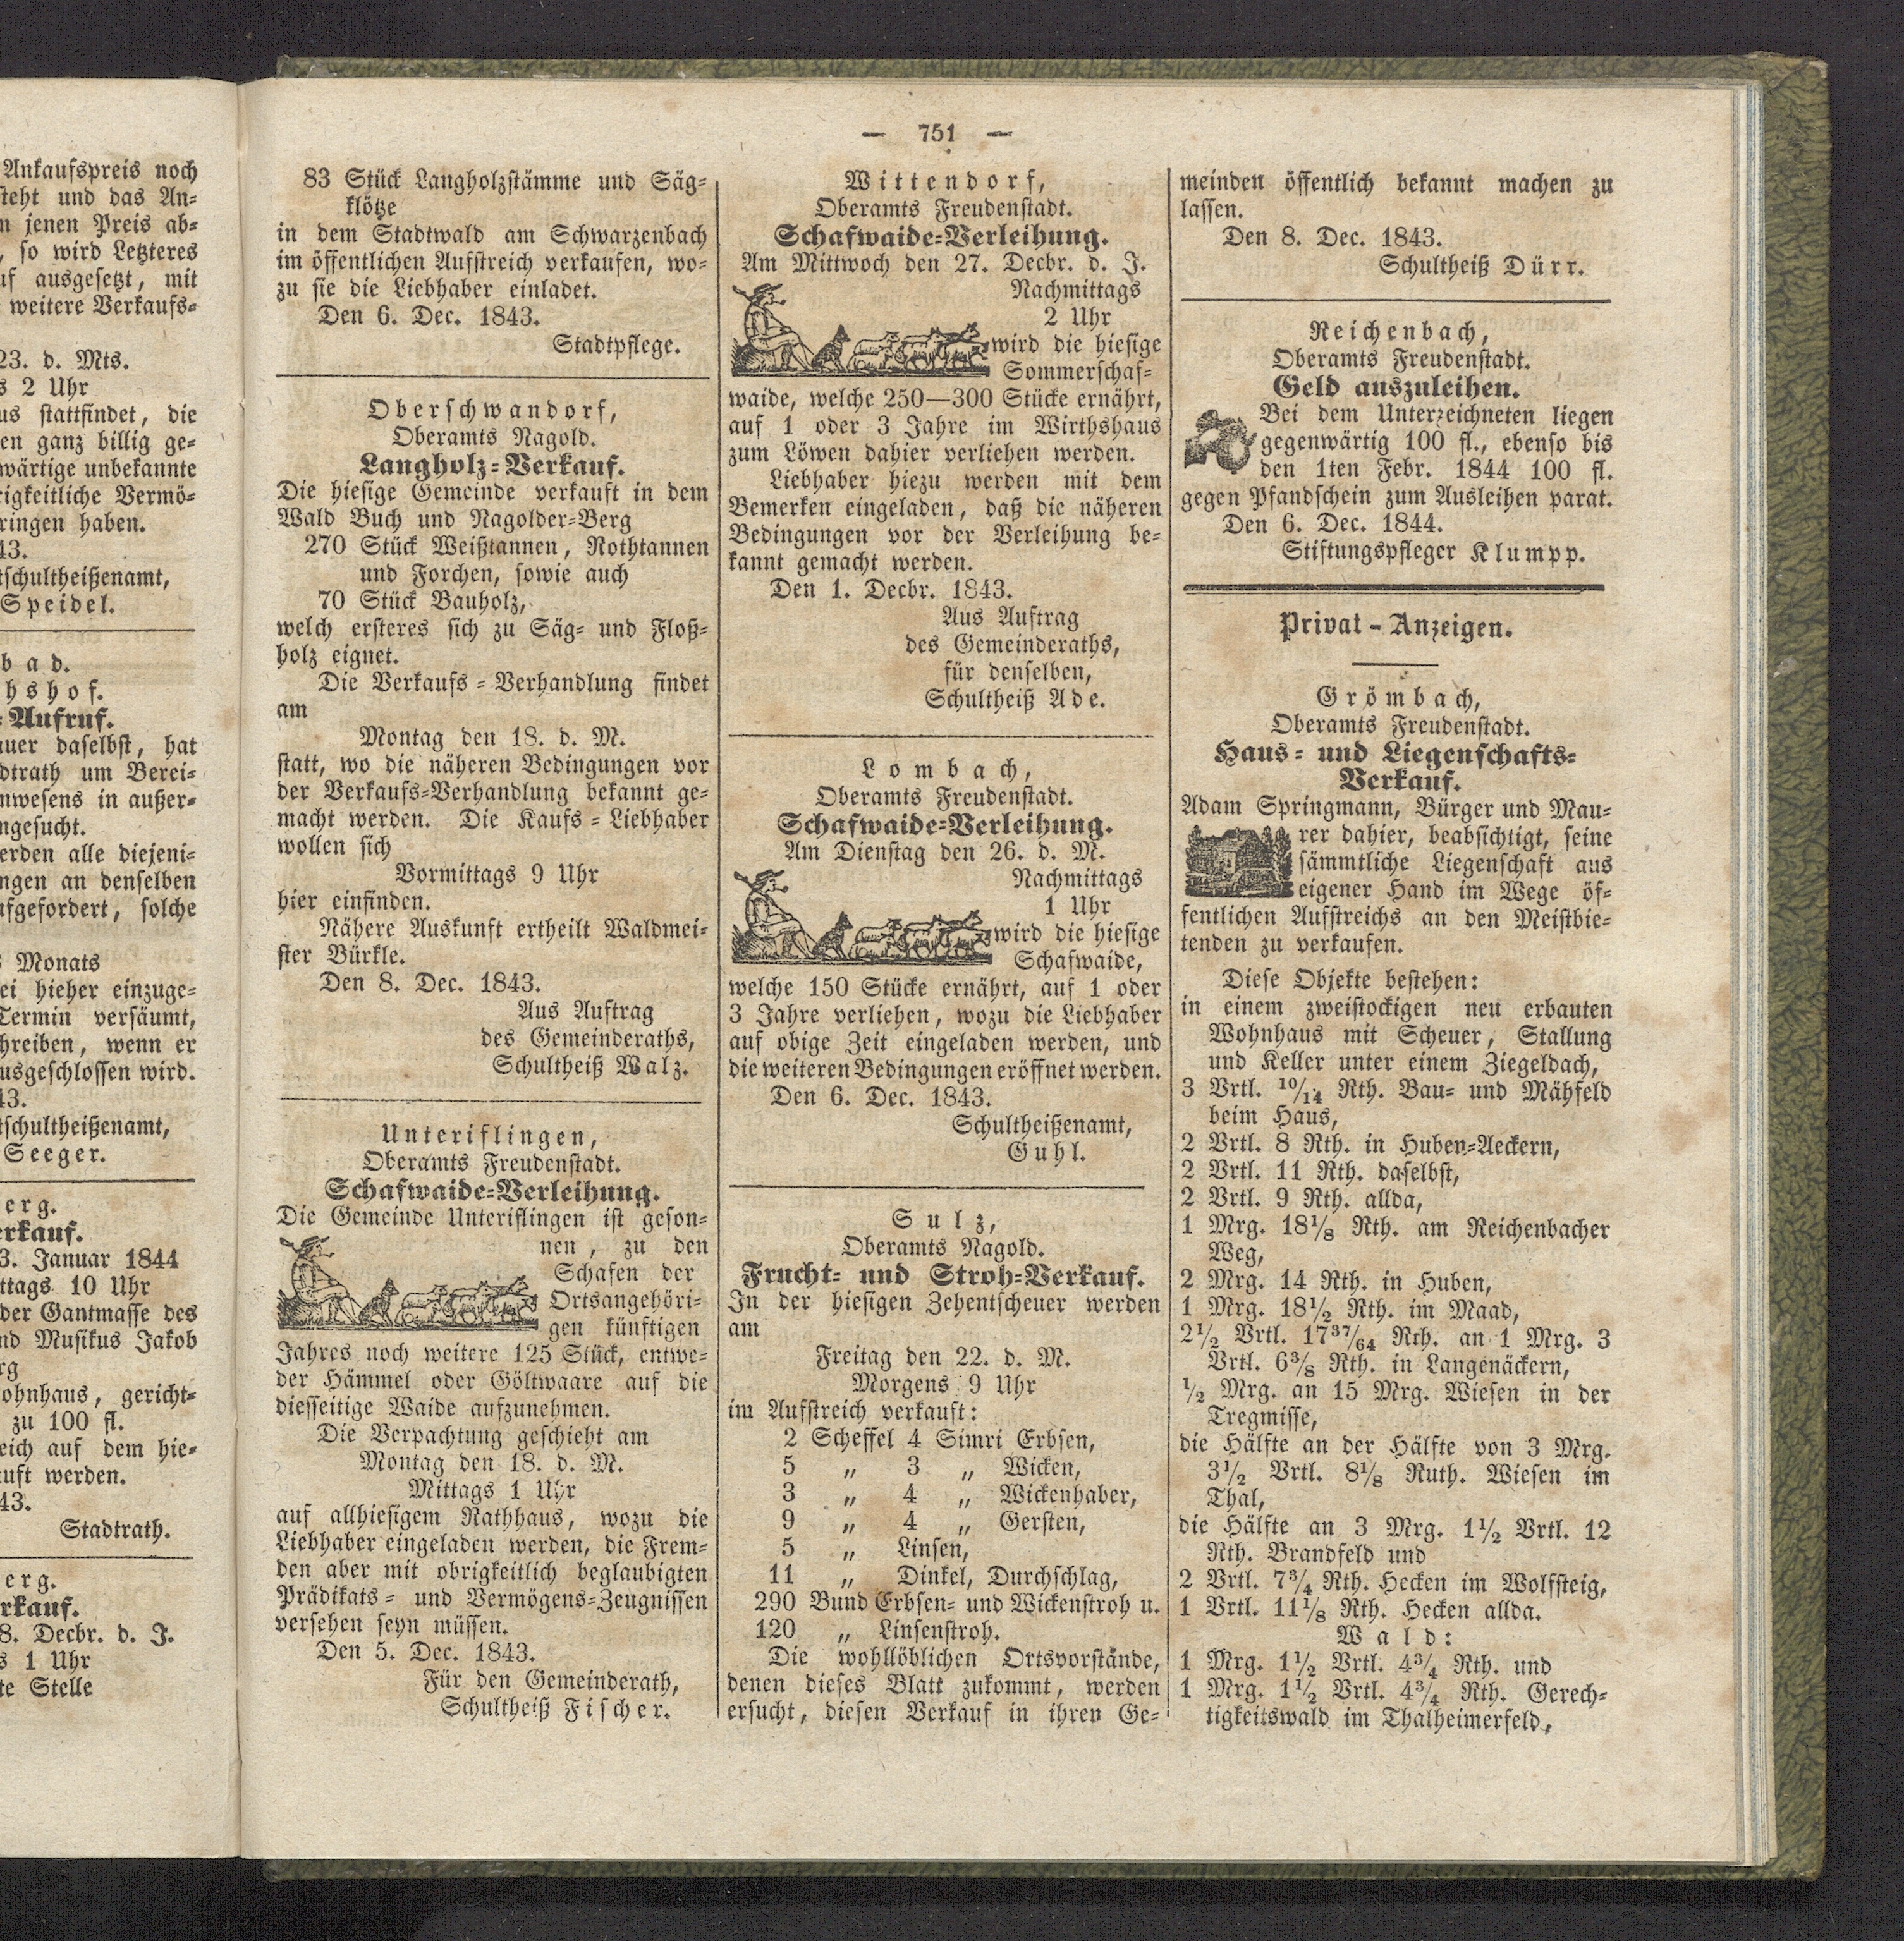 Ankaufspreis noch
steht und das An-
n jenen Preis ab-
, so wird Letzteres
uf ausgesetzt, mit
weitere Verkaufs-
23. d. Mts.
s 2 Uhr
us stattfindet, die
en ganz billig ge-
wärtige unbekannte
rigkeitliche Vermö-
ringen haben.
43.
tschultheißenamt,
Speidel.
bad.
hshof.
-Aufruf.
auer daselbst, hat
dtrath um Berei-
nwesens in außer-
ngesucht.
erden alle diejeni-
ngen an denselben
ufgefordert, solche
s Monats
ei hieher einzuge-
Termin versäumt,
hreiben, wenn er
usgeschlossen wird.
43.
tschultheißenamt,
Seeger.
erg.
erkauf.
3. Januar 1844
ttags 10 Uhr
der Gantmasse des
nd Musikus Jakob
rg
ohnhaus, gericht-
zu 100 fl.
eich auf dem hie-
uft werden.
43.
Stadtrath.
erg.
rkauf.
8. Decbr. d. J.
s 1 Uhr
te Stelle
— 751 —
83 Stück Langholzstämme und Säg-
klötze
in dem Stadtwald am Schwarzenbach
im öffentlichen Aufstreich verkaufen, wo-
zu sie die Liebhaber einladet.
Den 6. Dec. 1843.
Stadtpflege.
Oberschwandorf,
Oberamts Nagold.
Langholz-Verkauf.
Die hiesige Gemeinde verkauft in dem
Wald Buch und Nagolder-Berg
270 Stück Weißtannen, Rothtannen
und Forchen, sowie auch
70 Stück Bauholz,
welch ersteres sich zu Säg- und Floß-
holz eignet.
Die Verkaufs-Verhandlung findet
am
Montag den 18. d. M.
statt, wo die näheren Bedingungen vor
der Verkaufs-Verhandlung bekannt ge-
macht werden. Die Kaufs-Liebhaber
wollen sich
Vormittags 9 Uhr
hier einfinden.
Nähere Auskunft ertheilt Waldmei-
ster Bürkle.
Den 8. Dec. 1843.
Aus Auftrag
des Gemeinderaths,
Schultheiß Walz.
Unteriflingen,
Oberamts Freudenstadt.
Schafwaide-Verleihung.
Die Gemeinde Unteriflingen ist geson-
nen, zu den
Schafen der
Ortsangehöri-
gen künftigen
Jahres noch weitere 125 Stück, entwe-
der Hämmel oder Göltwaare auf die
diesseitige Waide aufzunehmen.
Die Verpachtung geschieht am
Montag den 18. d. M.
Mittags 1 Uhr
auf allhiesigem Rathhaus, wozu die
Liebhaber eingeladen werden, die Frem-
den aber mit obrigkeitlich beglaubigten
Prädikats- und Vermögens-Zeugnissen
versehen seyn müssen.
Den 5. Dec. 1843.
Für den Gemeinderath,
Schultheiß Fischer.
Wittendorf,
Oberamts Freudenstadt.
Schafwaide-Verleihung.
Am Mittwoch den 27. Decbr. d. J.
Nachmittags
2 Uhr
wird die hiesige
Sommerschaf-
waide, welche 250—300 Stücke ernährt,
auf 1 oder 3 Jahre im Wirthshaus
zum Löwen dahier verliehen werden.
Liebhaber hiezu werden mit dem
Bemerken eingeladen, daß die näheren
Bedingungen vor der Verleihung be-
kannt gemacht werden.
Den 1. Decbr. 1843.
Aus Auftrag
des Gemeinderaths,
für denselben,
Schultheiß Ade.
Lombach,
Oberamts Freudenstadt.
Schafwaide-Verleihung.
Am Dienstag den 26. d. M.
Nachmittags
1 Uhr
wird die hiesige
Schafwaide,
welche 150 Stücke ernährt, auf 1 oder
3 Jahre verliehen, wozu die Liebhaber
auf obige Zeit eingeladen werden, und
die weiteren Bedingungen eröffnet werden.
Den 6. Dec. 1843.
Schultheißenamt,
Guhl.
Sulz,
Oberamts Nagold.
Frucht- und Stroh-Verkauf.
In der hiesigen Zehentscheuer werden
am
Freitag den 22. d. M.
Morgens 9 Uhr
im Aufstreich verkauft:
2 Scheffel 4 Simri Erbsen,
5 „ 3 „ Wicken,
3 „ 4 „ Wickenhaber,
9 „ 4 „ Gersten,
5 „ Linsen,
11 „ Dinkel, Durchschlag,
290 Bund Erbsen- und Wickenstroh u.
120 „ Linsenstroh.
Die wohllöblichen Ortsvorstände,
denen dieses Blatt zukommt, werden
ersucht, diesen Verkauf in ihren Ge-
meinden öffentlich bekannt machen zu
lassen.
Den 8. Dec. 1843.
Schultheiß Dürr.
Reichenbach,
Oberamts Freudenstadt.
Geld auszuleihen.
Bei dem Unterzeichneten liegen
gegenwärtig 100 fl., ebenso bis
den 1ten Febr. 1844 100 fl.
gegen Pfandschein zum Ausleihen parat.
Den 6. Dec. 1844.
Stiftungspfleger Klumpp.
Privat-Anzeigen.
Grömbach,
Oberamts Freudenstadt.
Haus- und Liegenschafts-
Verkauf.
Adam Springmann, Bürger und Mau-
rer dahier, beabsichtigt, seine
sämmtliche Liegenschaft aus
eigener Hand im Wege öf-
fentlichen Aufstreichs an den Meistbie-
tenden zu verkaufen.
Diese Objekte bestehen:
in einem zweistockigen neu erbauten
Wohnhaus mit Scheuer, Stallung
und Keller unter einem Ziegeldach,
3 Vrtl. 10/14 Rth. Bau- und Mähfeld
beim Haus,
2 Vrtl. 8 Rth. in Huben-Aeckern,
2 Vrtl. 11 Rth. daselbst,
2 Vrtl. 9 Rth. allda,
1 Mrg. 18⅛ Rth. am Reichenbacher
Weg,
2 Mrg. 14 Rth. in Huben,
1 Mrg. 18½ Rth. im Maad,
2½ Vrtl. 17 37/64 Rth. an 1 Mrg. 3
Vrtl. 6⅜ Rth. in Langenäckern,
½ Mrg. an 15 Mrg. Wiesen in der
Tregmisse,
die Hälfte an der Hälfte von 3 Mrg.
3½ Vrtl. 8⅛ Ruth. Wiesen im
Thal,
die Hälfte an 3 Mrg. 1½ Vrtl. 12
Rth. Brandfeld und
2 Vrtl. 7¾ Rth. Hecken im Wolfsteig,
1 Vrtl. 11⅛ Rth. Hecken allda.
Wald:
1 Mrg. 1½ Vrtl. 4¾ Rth. und
1 Mrg. 1½ Vrtl. 4¾ Rth. Gerech-
tigkeitswald im Thalheimerfeld,